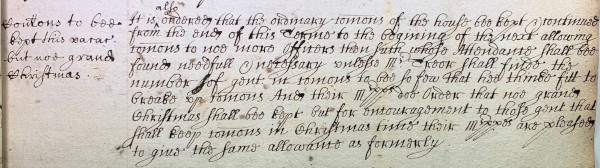 Comons to bee
kept this vacac
but noe grand
Christmas.
also
It is ordered that the ordinary comons of the house bee kept & continued
from the end of this Terme to the begining of the next allowing
comons to noe more officers then such whose Attendance shall bee
found needfull & necessary unlesse Mr Treor shall finde the
number of gent in comons to bee so few that hee thinke fitt to
breake up comons And their Mpps doe Order that noe grand
Christmas shall bee kept but for encouragement to those gent that
shall keep comons in Christmas time their Mpps are pleased
to give the same allowance as formerly